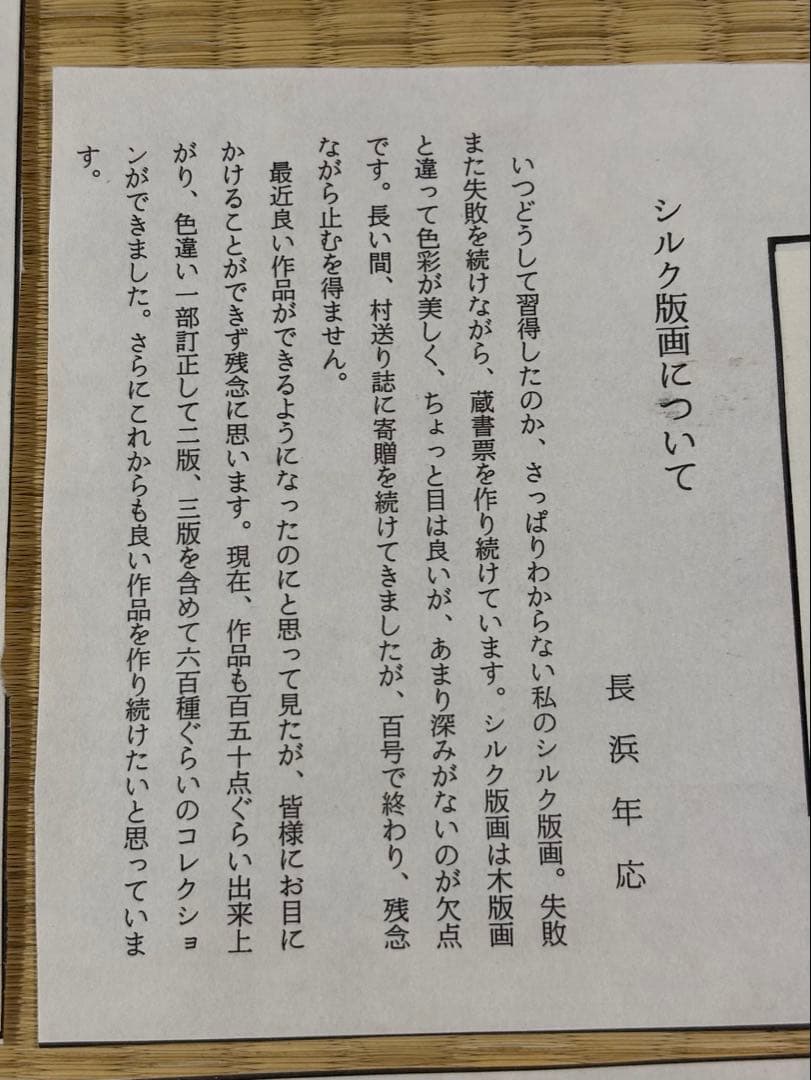 シルク版画について
長浜年応
いつどうして習得したのか、さっぱりわからない私のシルク版画。失敗
また失敗を続けながら、蔵書票を作り続けています。シルク版画は木版画
と違って色彩が美しく、ちょっと目は良いが、あまり深みがないのが欠点
です。長い間、村送り誌に寄贈を続けてきましたが、百号で終わり、残念
ながら止むを得ません。
最近良い作品ができるようになったのにと思って見たが、皆様にお目に
かけることができず残念に思います。現在、作品も百五十点ぐらい出来上
がり、色違い一部訂正して二版、三版を含めて六百種ぐらいのコレクショ
ンができました。さらにこれからも良い作品を作り続けたいと思っていま
す。